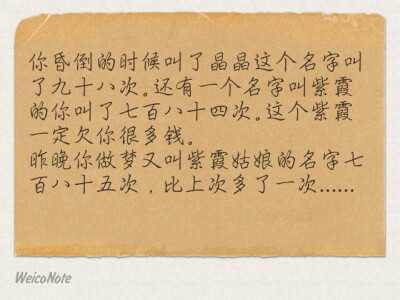 你昏倒的时候叫了晶晶这个名字叫
了九十八次。还有一个名字叫紫霞
的你叫了七百八十四次。这个紫霞
一定欠你很多钱。
昨晚你做梦又叫紫霞姑娘的名字七
百八十五次，比上次多了一次……
WeicoNote